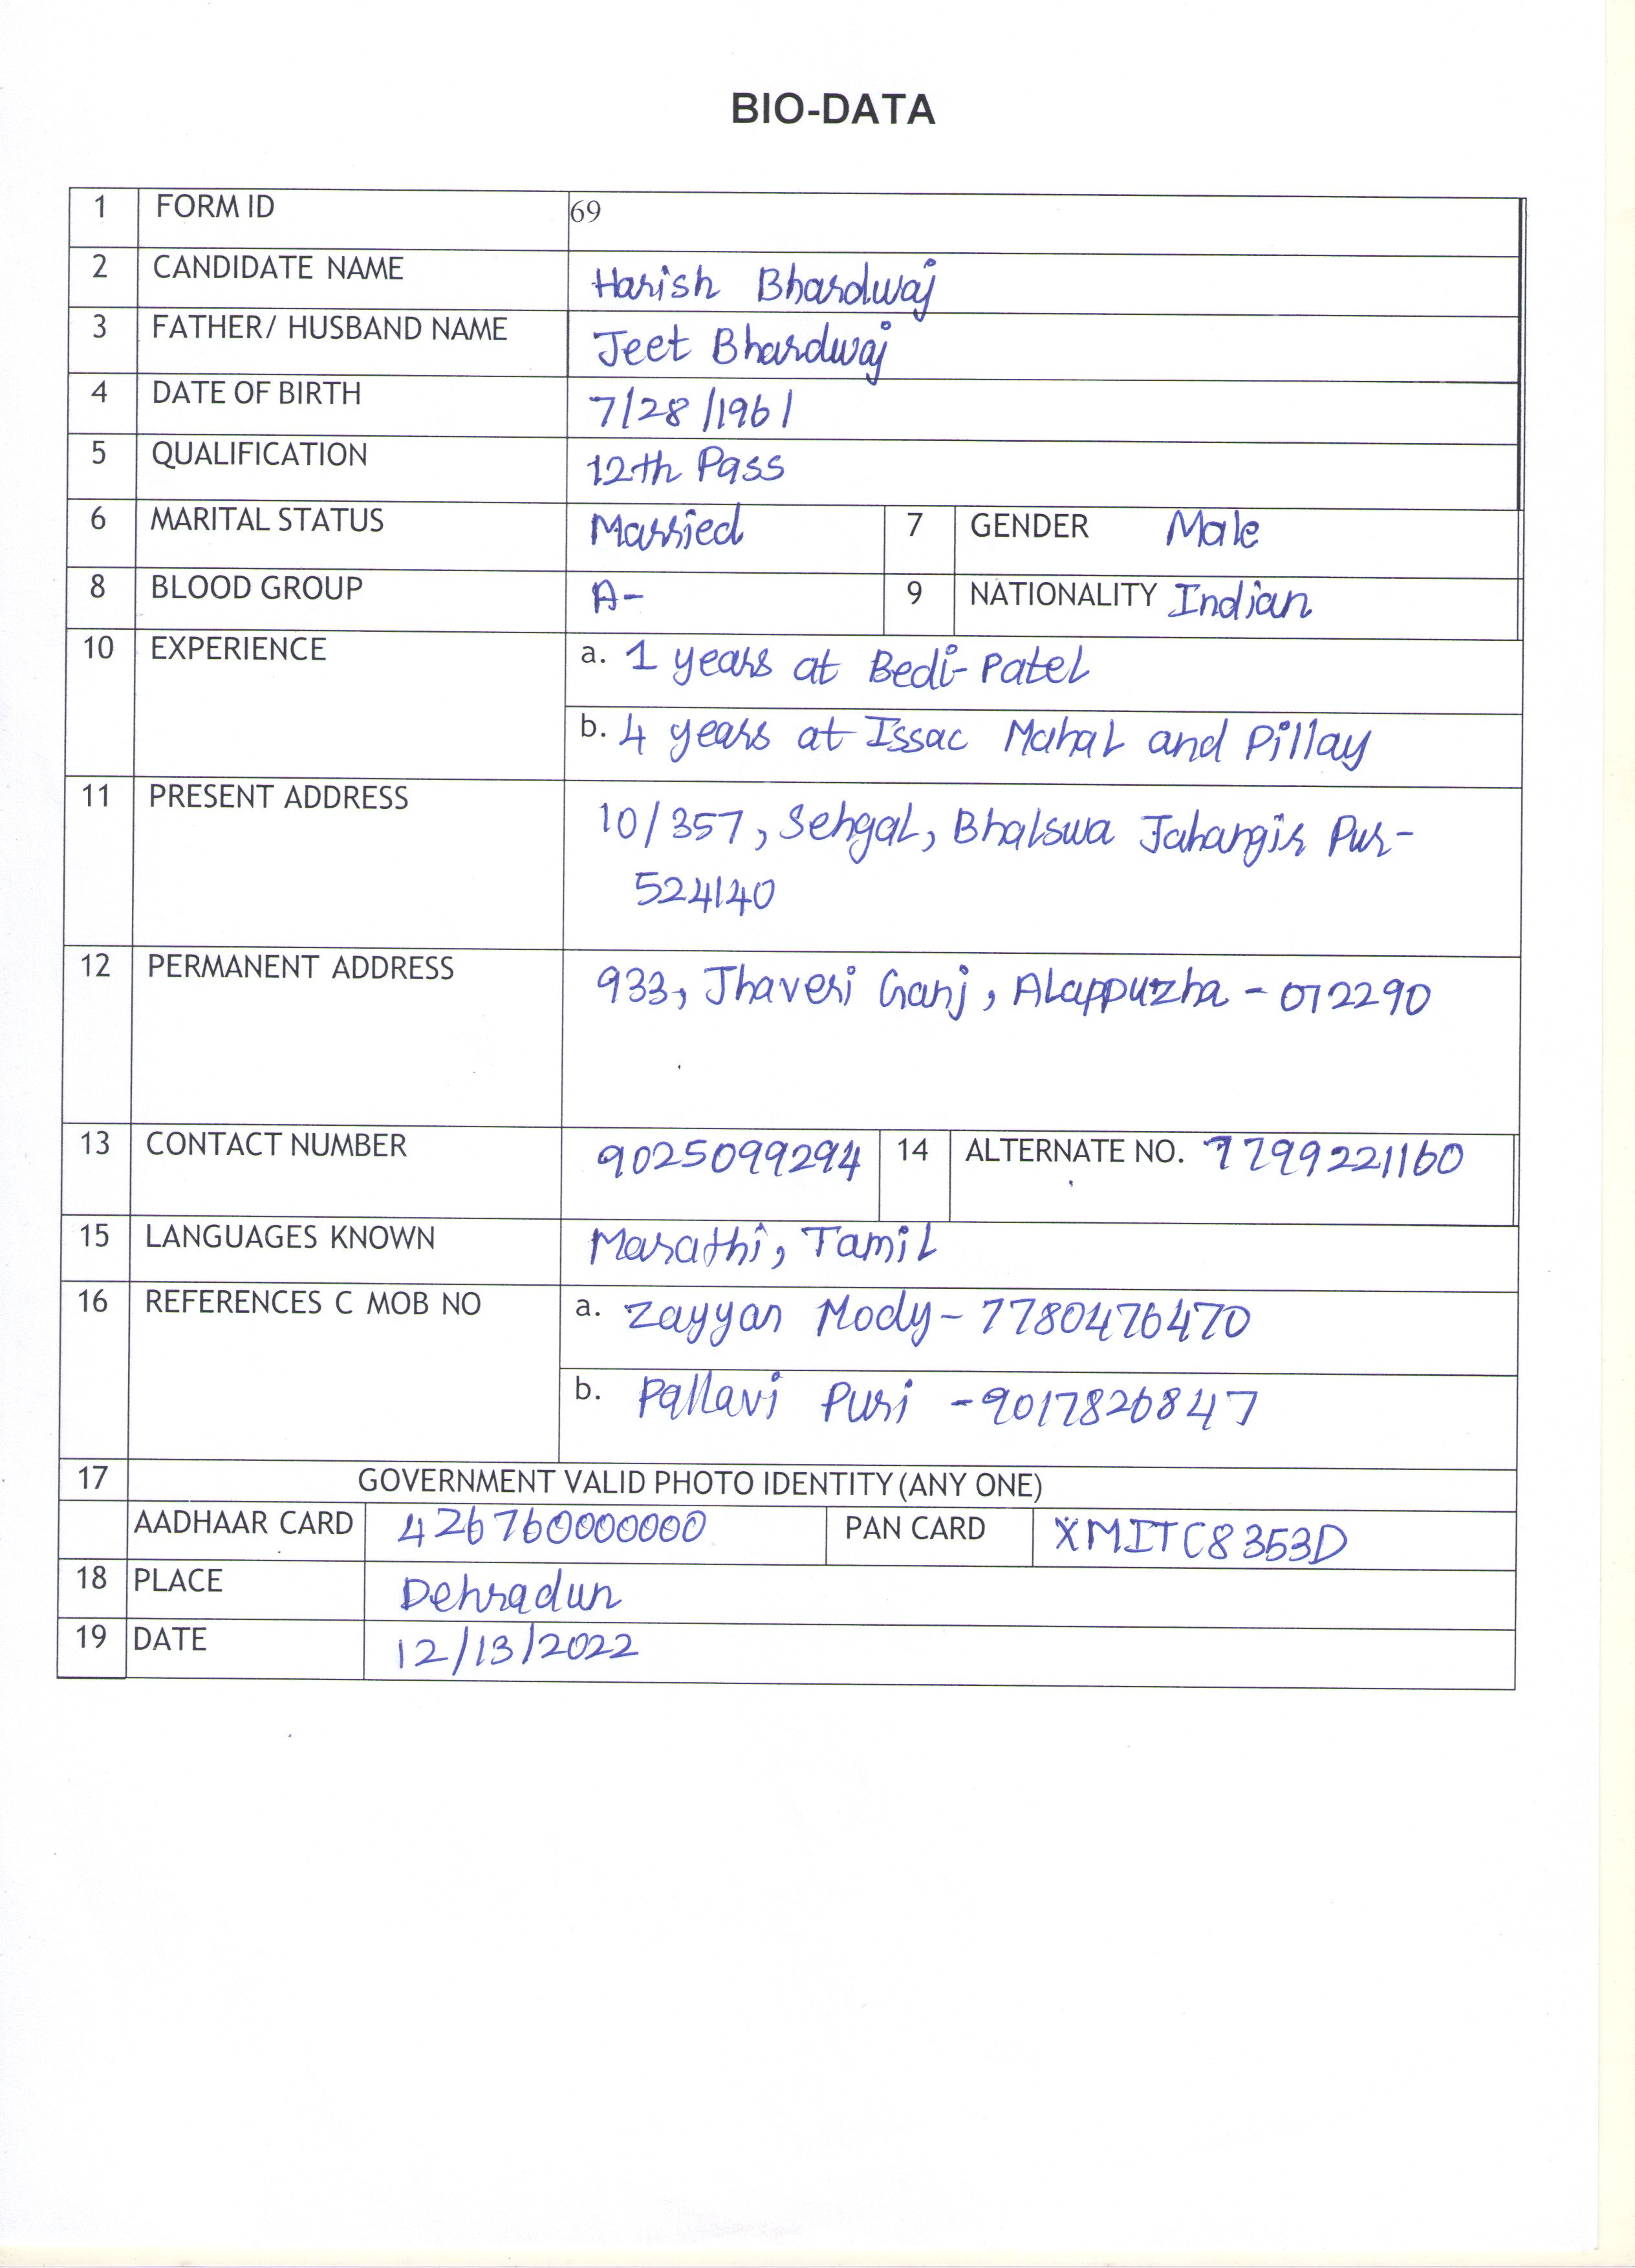 BIO-DATA
1 FORM ID 69
2 CANDIDATE NAME Harish Bhardwaj
3 FATHER/ HUSBAND NAME Jeet Bhardwaj
4 DATE OF BIRTH 7/28/1961
5 QUALIFICATION 12th Pass
6 MARITAL STATUS Married 7 GENDER Male
8 BLOOD GROUP A- 9 NATIONALITY Indian
10 EXPERIENCE a. 1 years at Bedi-Patel
b. 4 years at Issac Mahal and Pillay
11 PRESENT ADDRESS 10/357, Sehgal, Bhalswa Jahangir Pur-
524140
12 PERMANENT ADDRESS 933, Jhaveri Ganj, Alappuzha - 072290
13 CONTACT NUMBER 9025099294 14 ALTERNATE NO. 7799221160
15 LANGUAGES KNOWN Marathi, Tamil
16 REFERENCES C MOB NO a. Zayyan Mody- 7780476470
b. Pallavi Puri -9017826847
17 GOVERNMENT VALID PHOTO IDENTITY (ANY ONE)
AADHAAR CARD 426760000000 PAN CARD XMITC8353D
18 PLACE Dehradun
19 DATE 12/13/2022